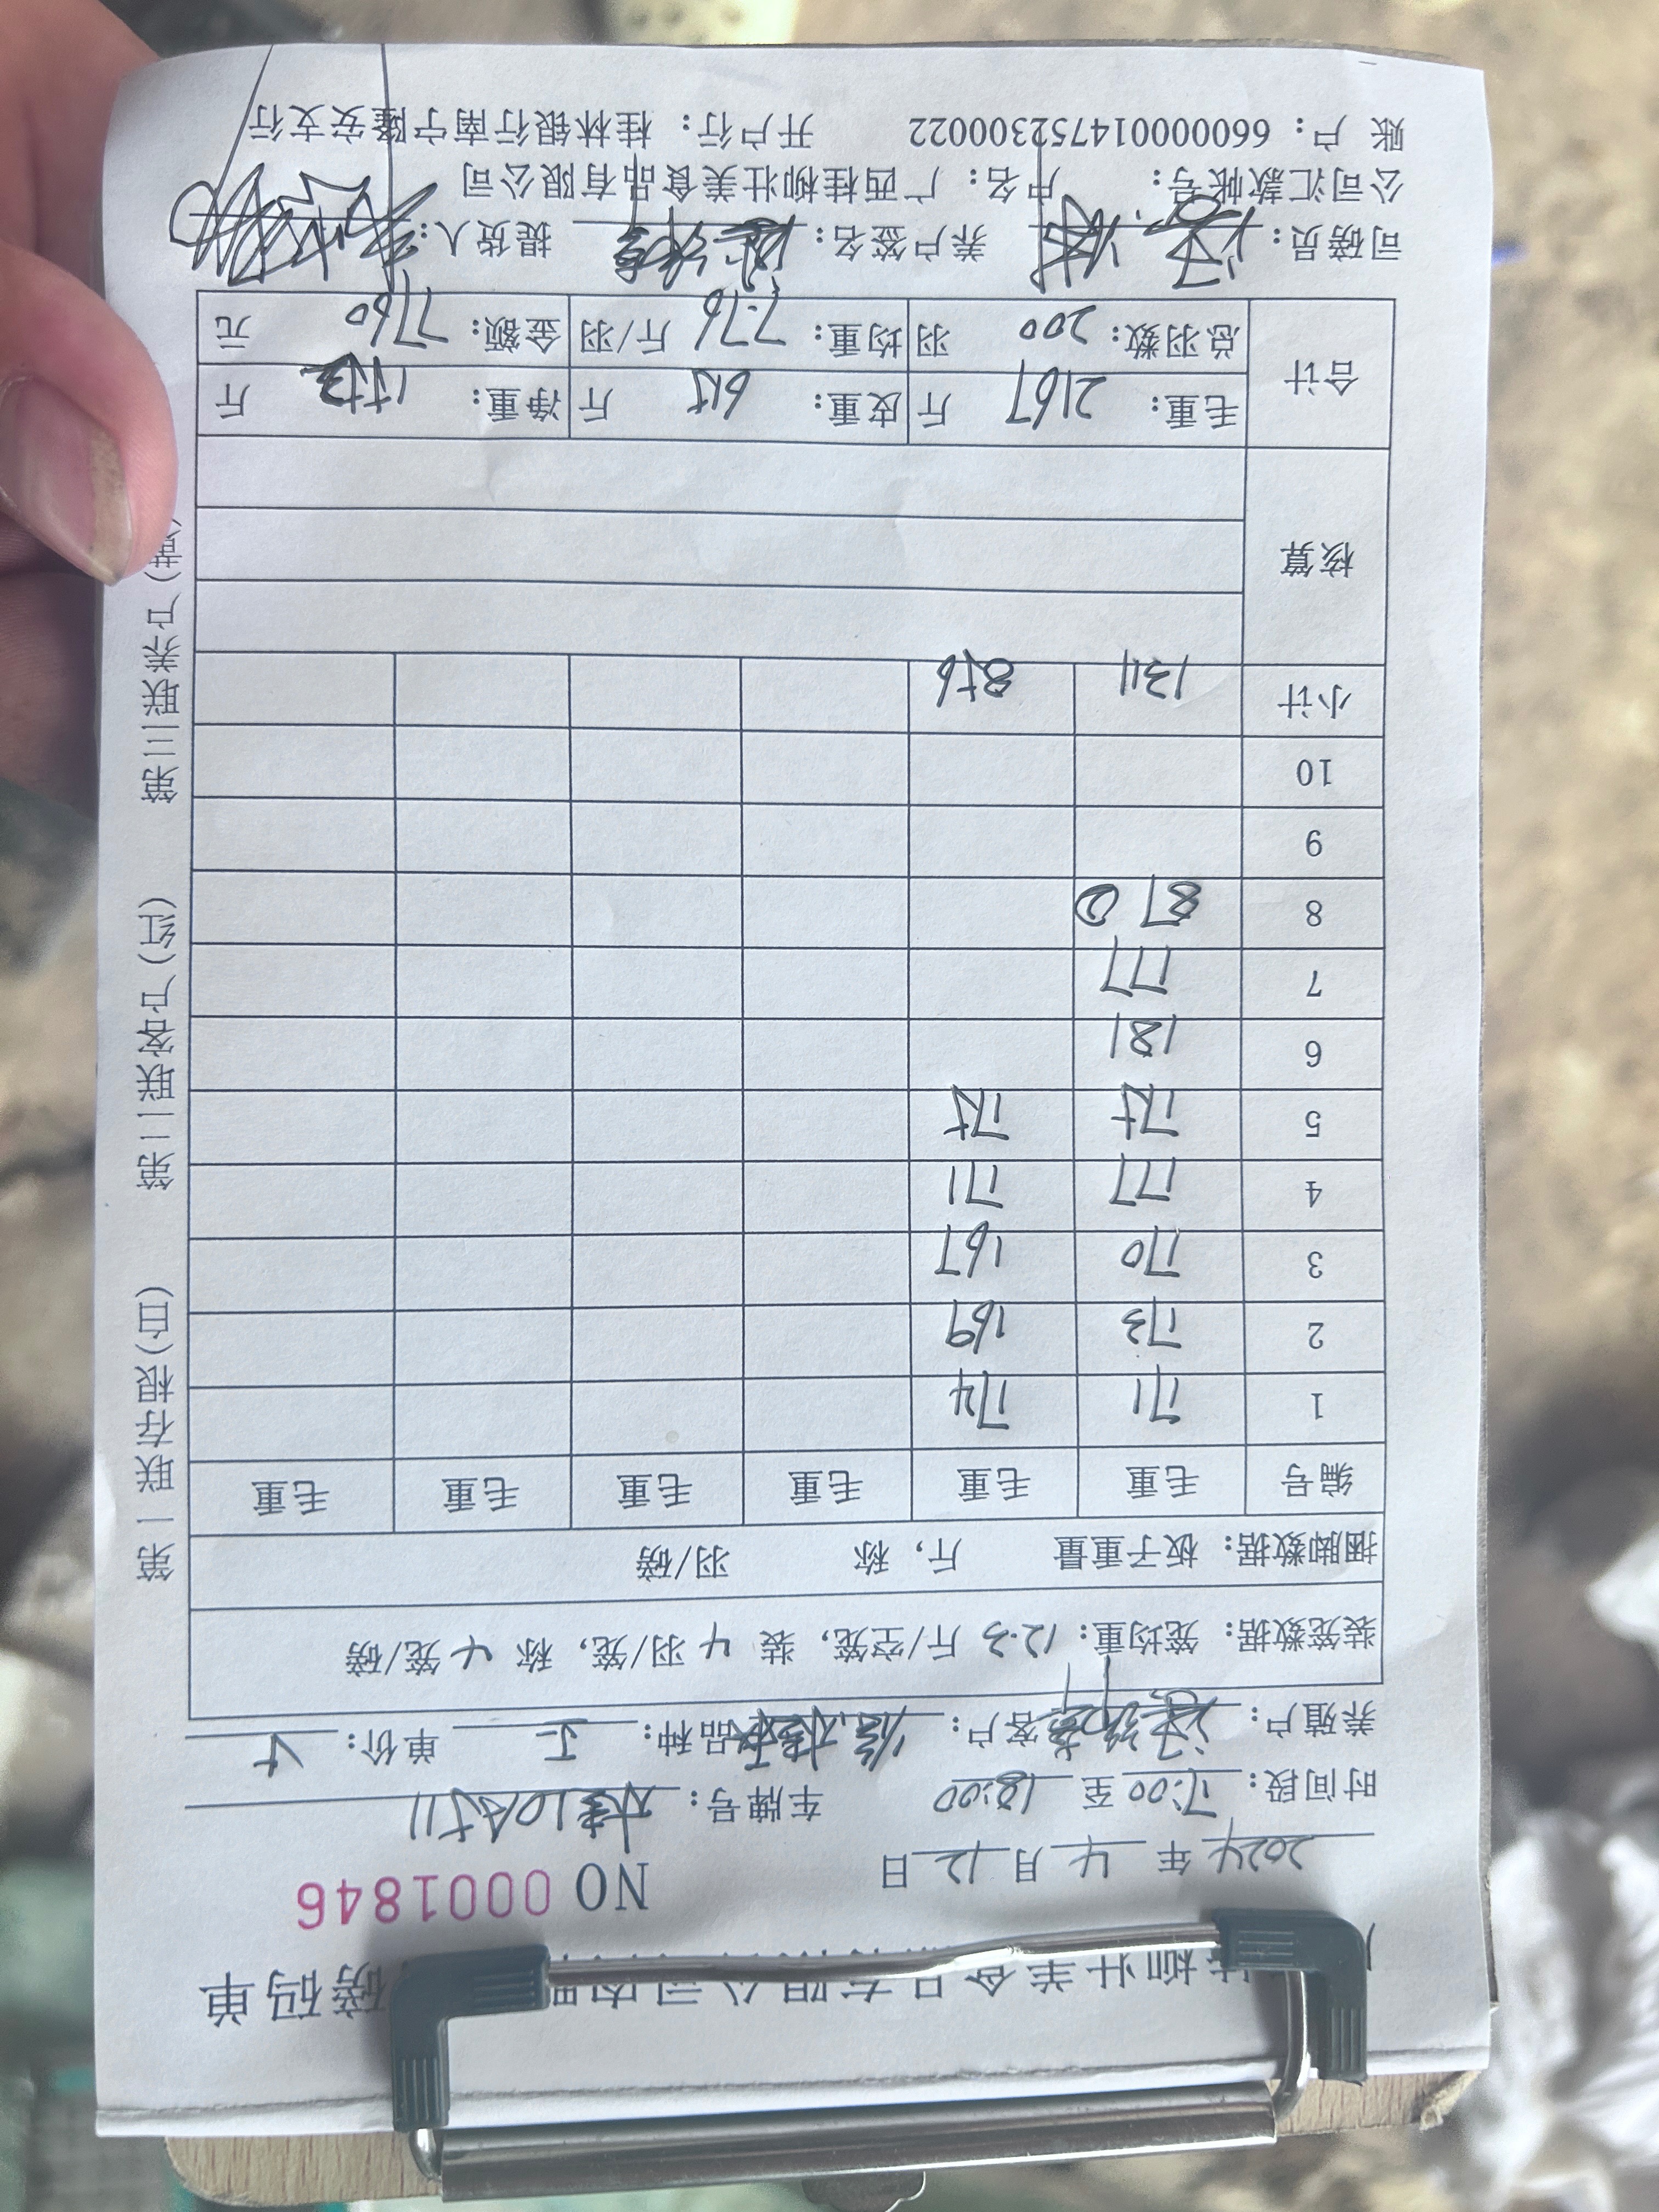 柳壮美食品有限公司肉鸭 磅码单
NO 0001846
2024 年 4 月 12 日
时间段: 17:00 至 18:00 车牌号: 桂10A511
养殖户: 客户: 品种: 单价: 5
装笼数据: 笼均重: 12.3 斤/空笼, 装 4 羽/笼, 称 4 笼/磅
捆脚数据: 板子重量 斤, 称 羽/磅
编号 毛重 毛重 毛重 毛重 毛重 毛重
1 171 174
2 173 169
3 170 167
4 177 171
5 175 175
6 181
7 177
8 87 ②
9
10
小计 1311 856
核算
合计 毛重: 2167 斤 皮重: 615 斤 净重: 斤
总羽数: 200 羽 均重: 7.76 斤/羽 金额: 7760 元
司磅员: 养户签名: 提货人:
公司汇款帐号: 户名: 广西桂柳壮美食品有限公司
账 户: 660000014752300022 开户行: 桂林银行南宁隆安支行
第一联存根(白) 第二联客户(红) 第三联养户(黄)